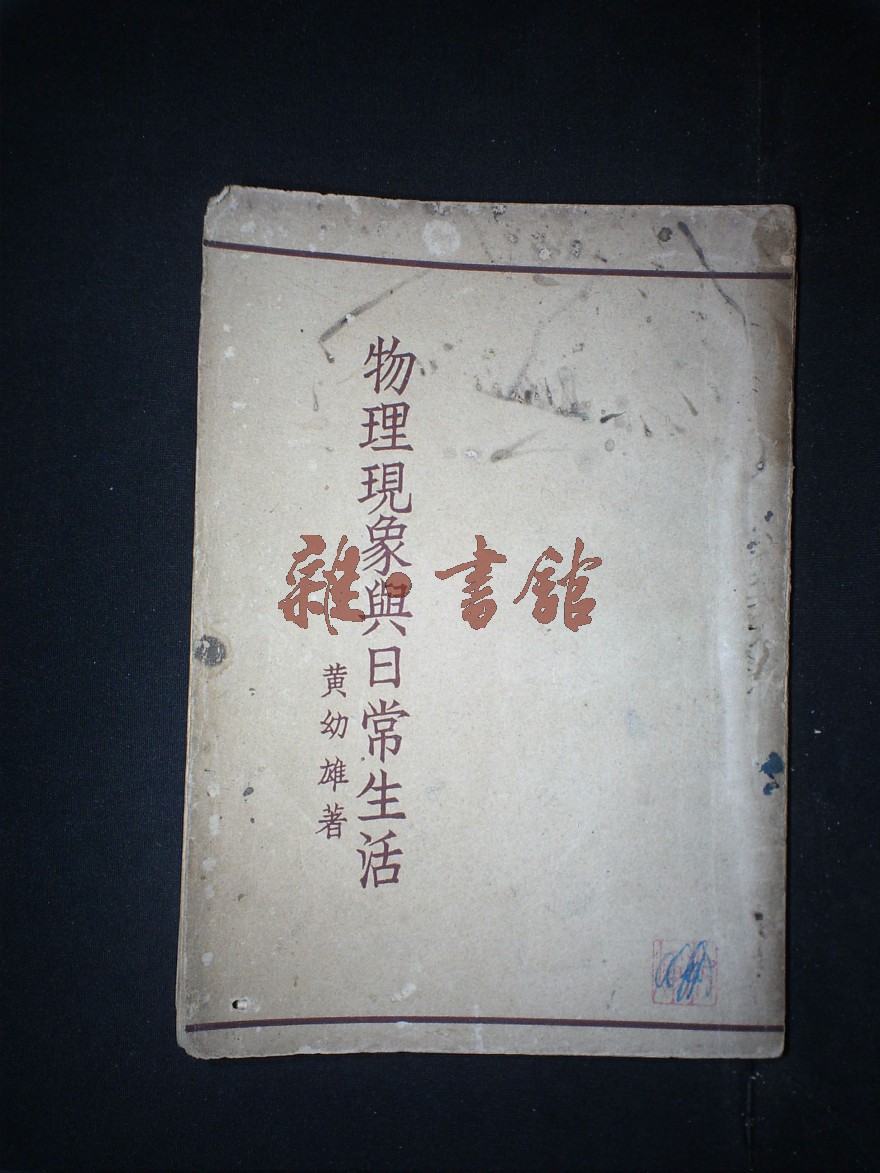 物理現象與日常生活
黄幼雄著
雜·書館